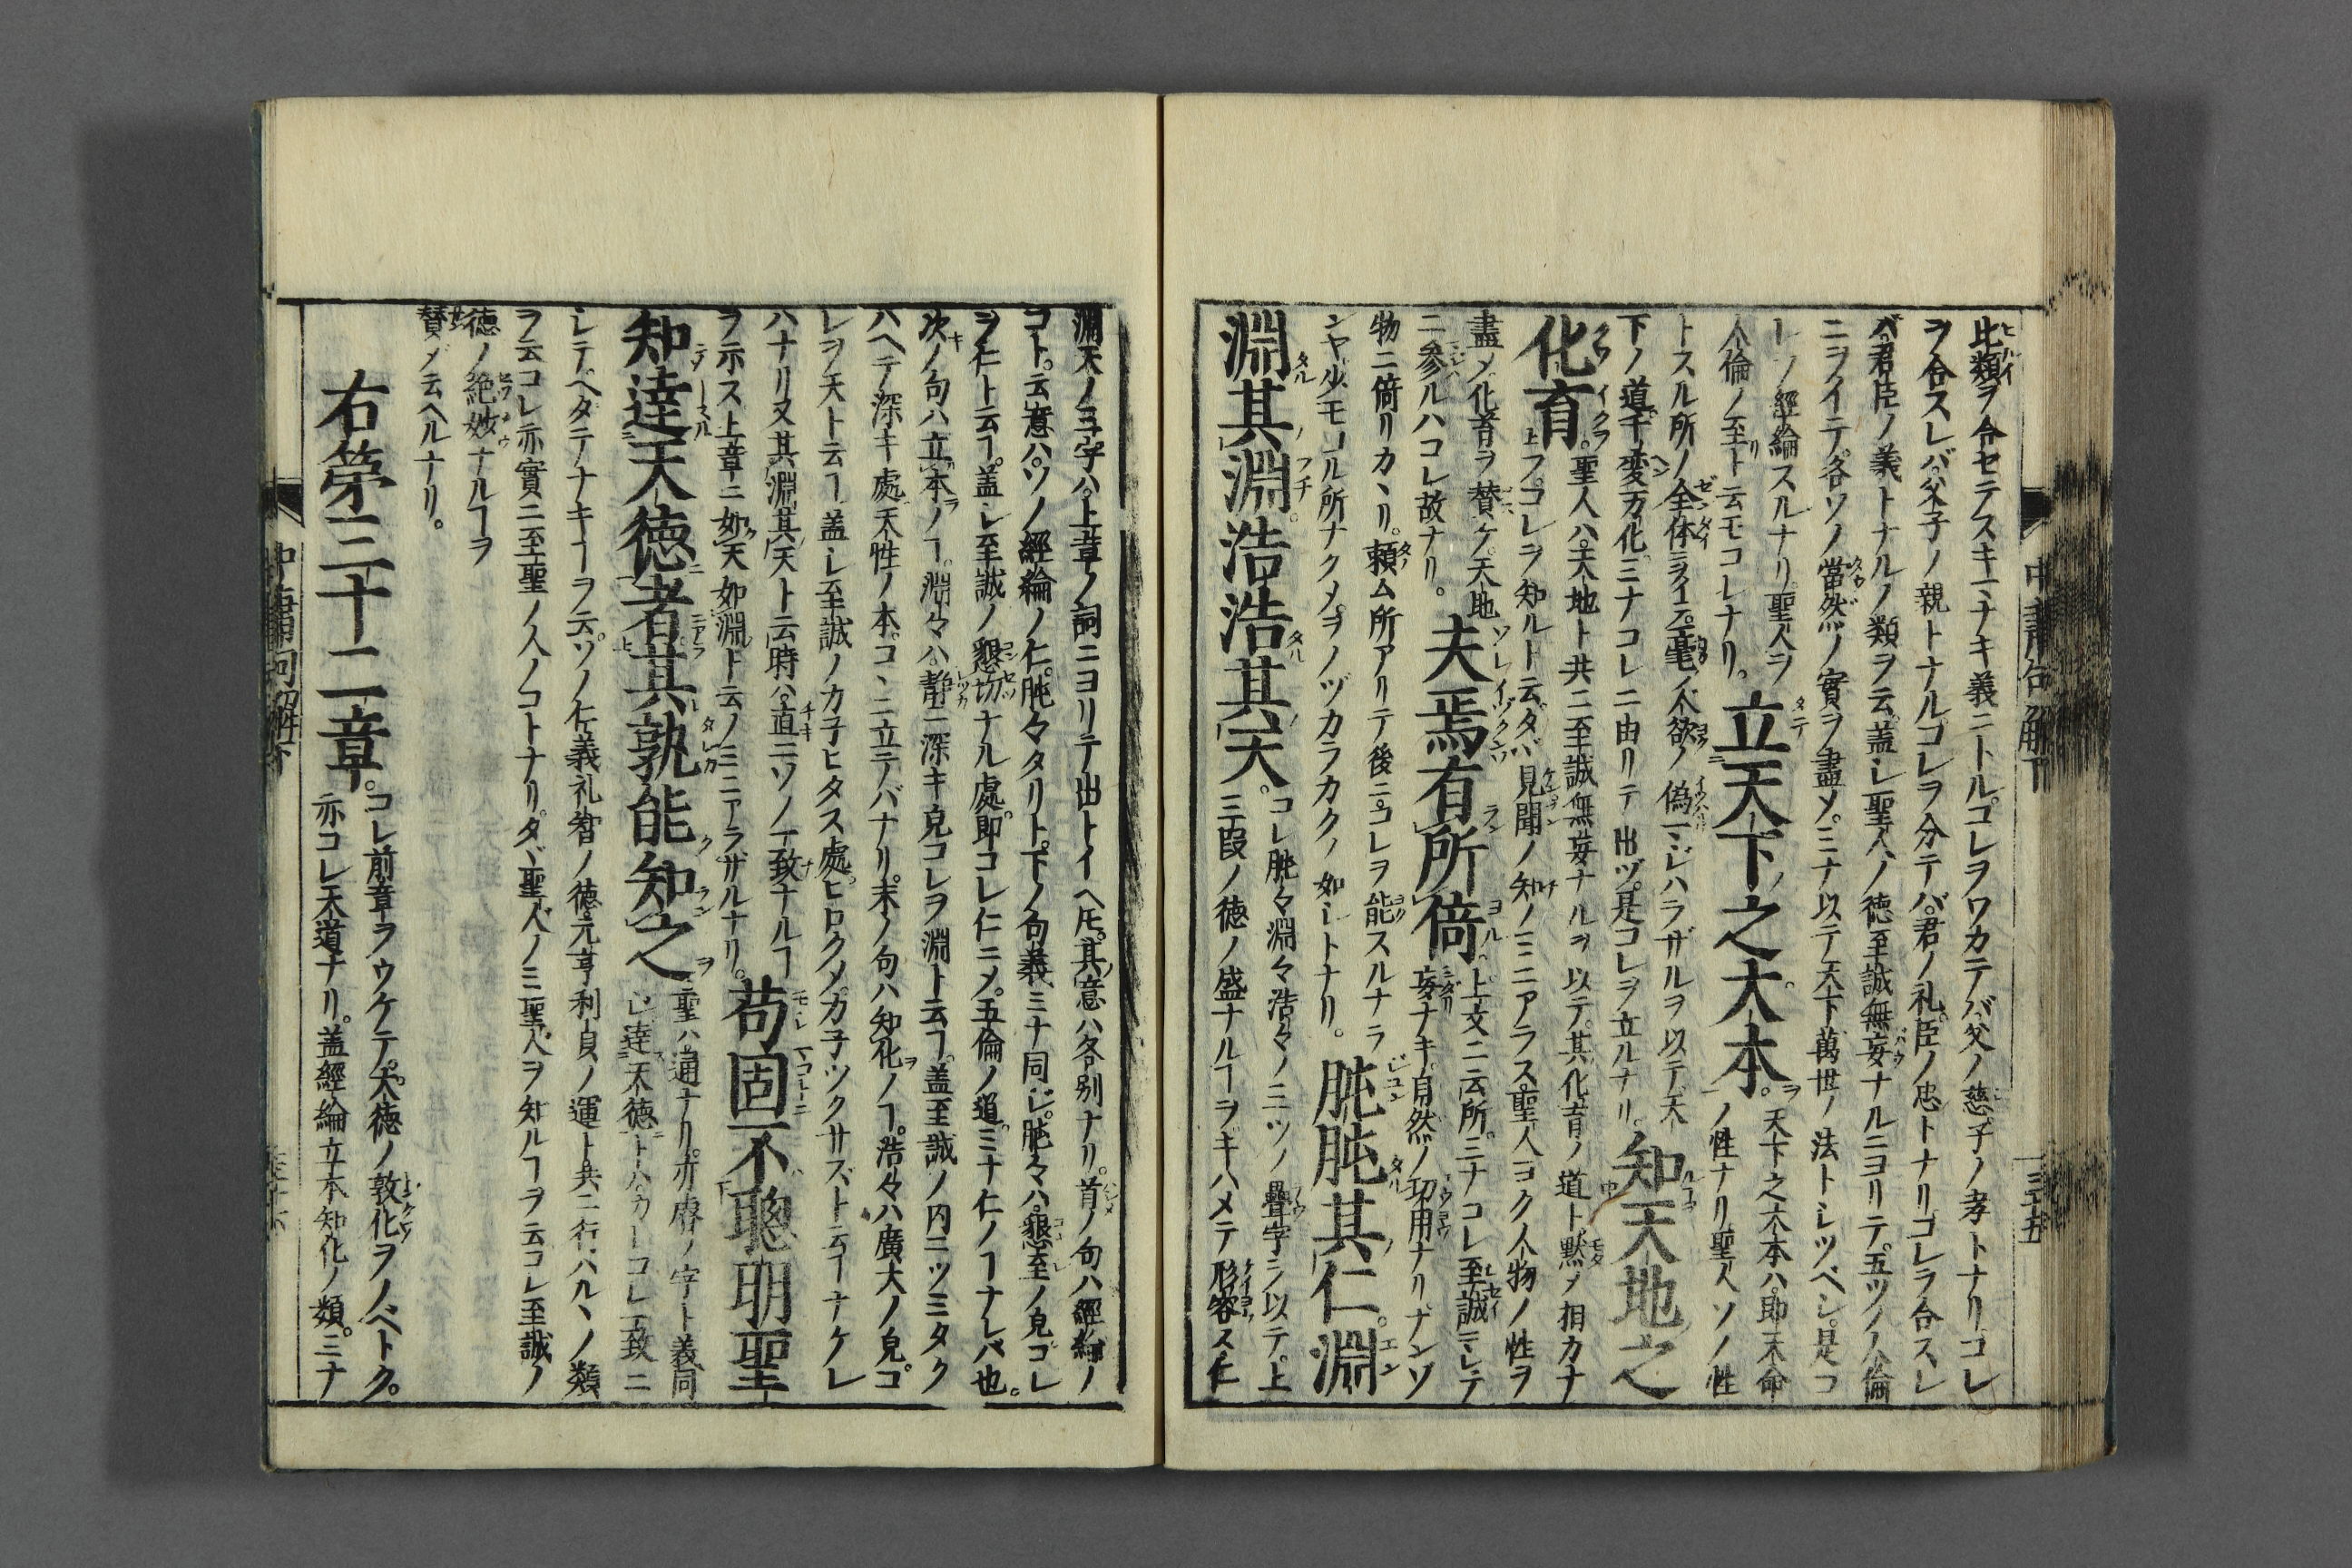 比類ヲ合セテスキマナキ義ニトルコレヲワカテバ父ノ慈子ノ孝トナリコレ
ヲ合スレバ父子ノ親トナルコレヲ分テバ君ノ礼臣ノ忠トナリコレヲ合スレ
バ君臣ノ義トナルノ類ヲ云蓋シ聖人ノ徳至誠無妄ナルニヨリテ五ツノ人倫
ニヲイテ各ソノ當然ノ實ヲ盡メミナ以テ天下萬世ノ法トシツベシ是コ
レソノ經綸スルナリ聖人ヲ
人倫ノ至ト云モコレナリ。
立天下之大本。
天下之大本ハ即天命
ノ性ナリ聖人ソノ性
トスル所ノ全体ニヲイテ一毫ノ人欲ノ偽マジハラザルヲ以テ天
下ノ道千変万化ミナコレニ由リテ出ヅ是コレヲ立ルナリ。
知天地之
化育。
聖人ハ天地ト共ニ至誠無妄ナルヲ以テ其化育ノ道ト黙メ相カナ
フコレヲ知ルト云タヾ見聞ノ知ノミニアラス聖人ヨク人物ノ性ヲ
盡メ化育ヲ賛ケ天地
ニ參ルハコレ故ナリ。
夫焉有所倚。
上文ニ云所ミナコレ至誠ニシテ
妄ナキ自然ノ功用ナリナンゾ
物ニ倚リカヽリ。頼ム所アリテ後ニコレヲ能スルナラ
ンヤ少モコル所ナクメヲノヅカラカクノ如シトナリ。
肫肫其仁。淵
淵其淵。浩浩其天。
コレ肫々淵々浩々ノ三ツノ疊字ヲ以テ上
三段ノ徳ノ盛ナルヿヲキハメテ形容ス仁
淵天ノ三字ハ上章ノ詞ニヨリテ出トイヘ𪜈其意ハ各別ナリ首ノ句ハ經綸ノ
コト。云意ハソノ經綸ノ仁肫々タリト下ノ句義ミナ同ジ肫々ハ懇至ノ皃コレ
ヲ仁ト云ヿ蓋シ至誠ノ懇切ナル處即コレ仁ニメ五倫ノ道ミナ仁ノヿナレバ也。
次ノ句ハ立本ノヿ淵々ハ静ニ深キ皃コレヲ淵ト云ヿ蓋至誠ノ内ニツミタク
ハヘテ深キ處天性ノ本コヽニ立テバナリ末ノ句ハ知化ノヿ浩々ハ廣大ノ皃コ
レヲ天ト云ヿ蓋シ至誠ノカ子ヒタス處ヒロクメカ子ツクサズト云ヿナケレ
ハナリ又其淵其天ト云時ハ直ニソノ一致ナルヿ
ヲ示ス上章ニ如天如淵ト云ノミニアラザルナリ。
苟固不聰明聖
知達天徳者其孰能知之
聖ハ通ナリ
亦睿ノ字ト義同
シ達天徳トハカレコレ一致ニ
レテヘダテナキヿヲ云ソノ仁義礼智ノ徳元亨利貞ノ運ト共ニ行ハルヽノ類
ヲ云コレ亦實ニ至聖ノ人ノコトナリタヾ聖人ノミ聖人ヲ知ルヿヲ云コレ至誠ノ
徳ノ絶妙ナルヿヲ
賛メ云ヘルナリ。
右第三十二章。
コレ前章ヲウケテ大徳ノ敦化ヲノベトク。
亦コレ天道ナリ。蓋經綸立本知化ノ類ミナ